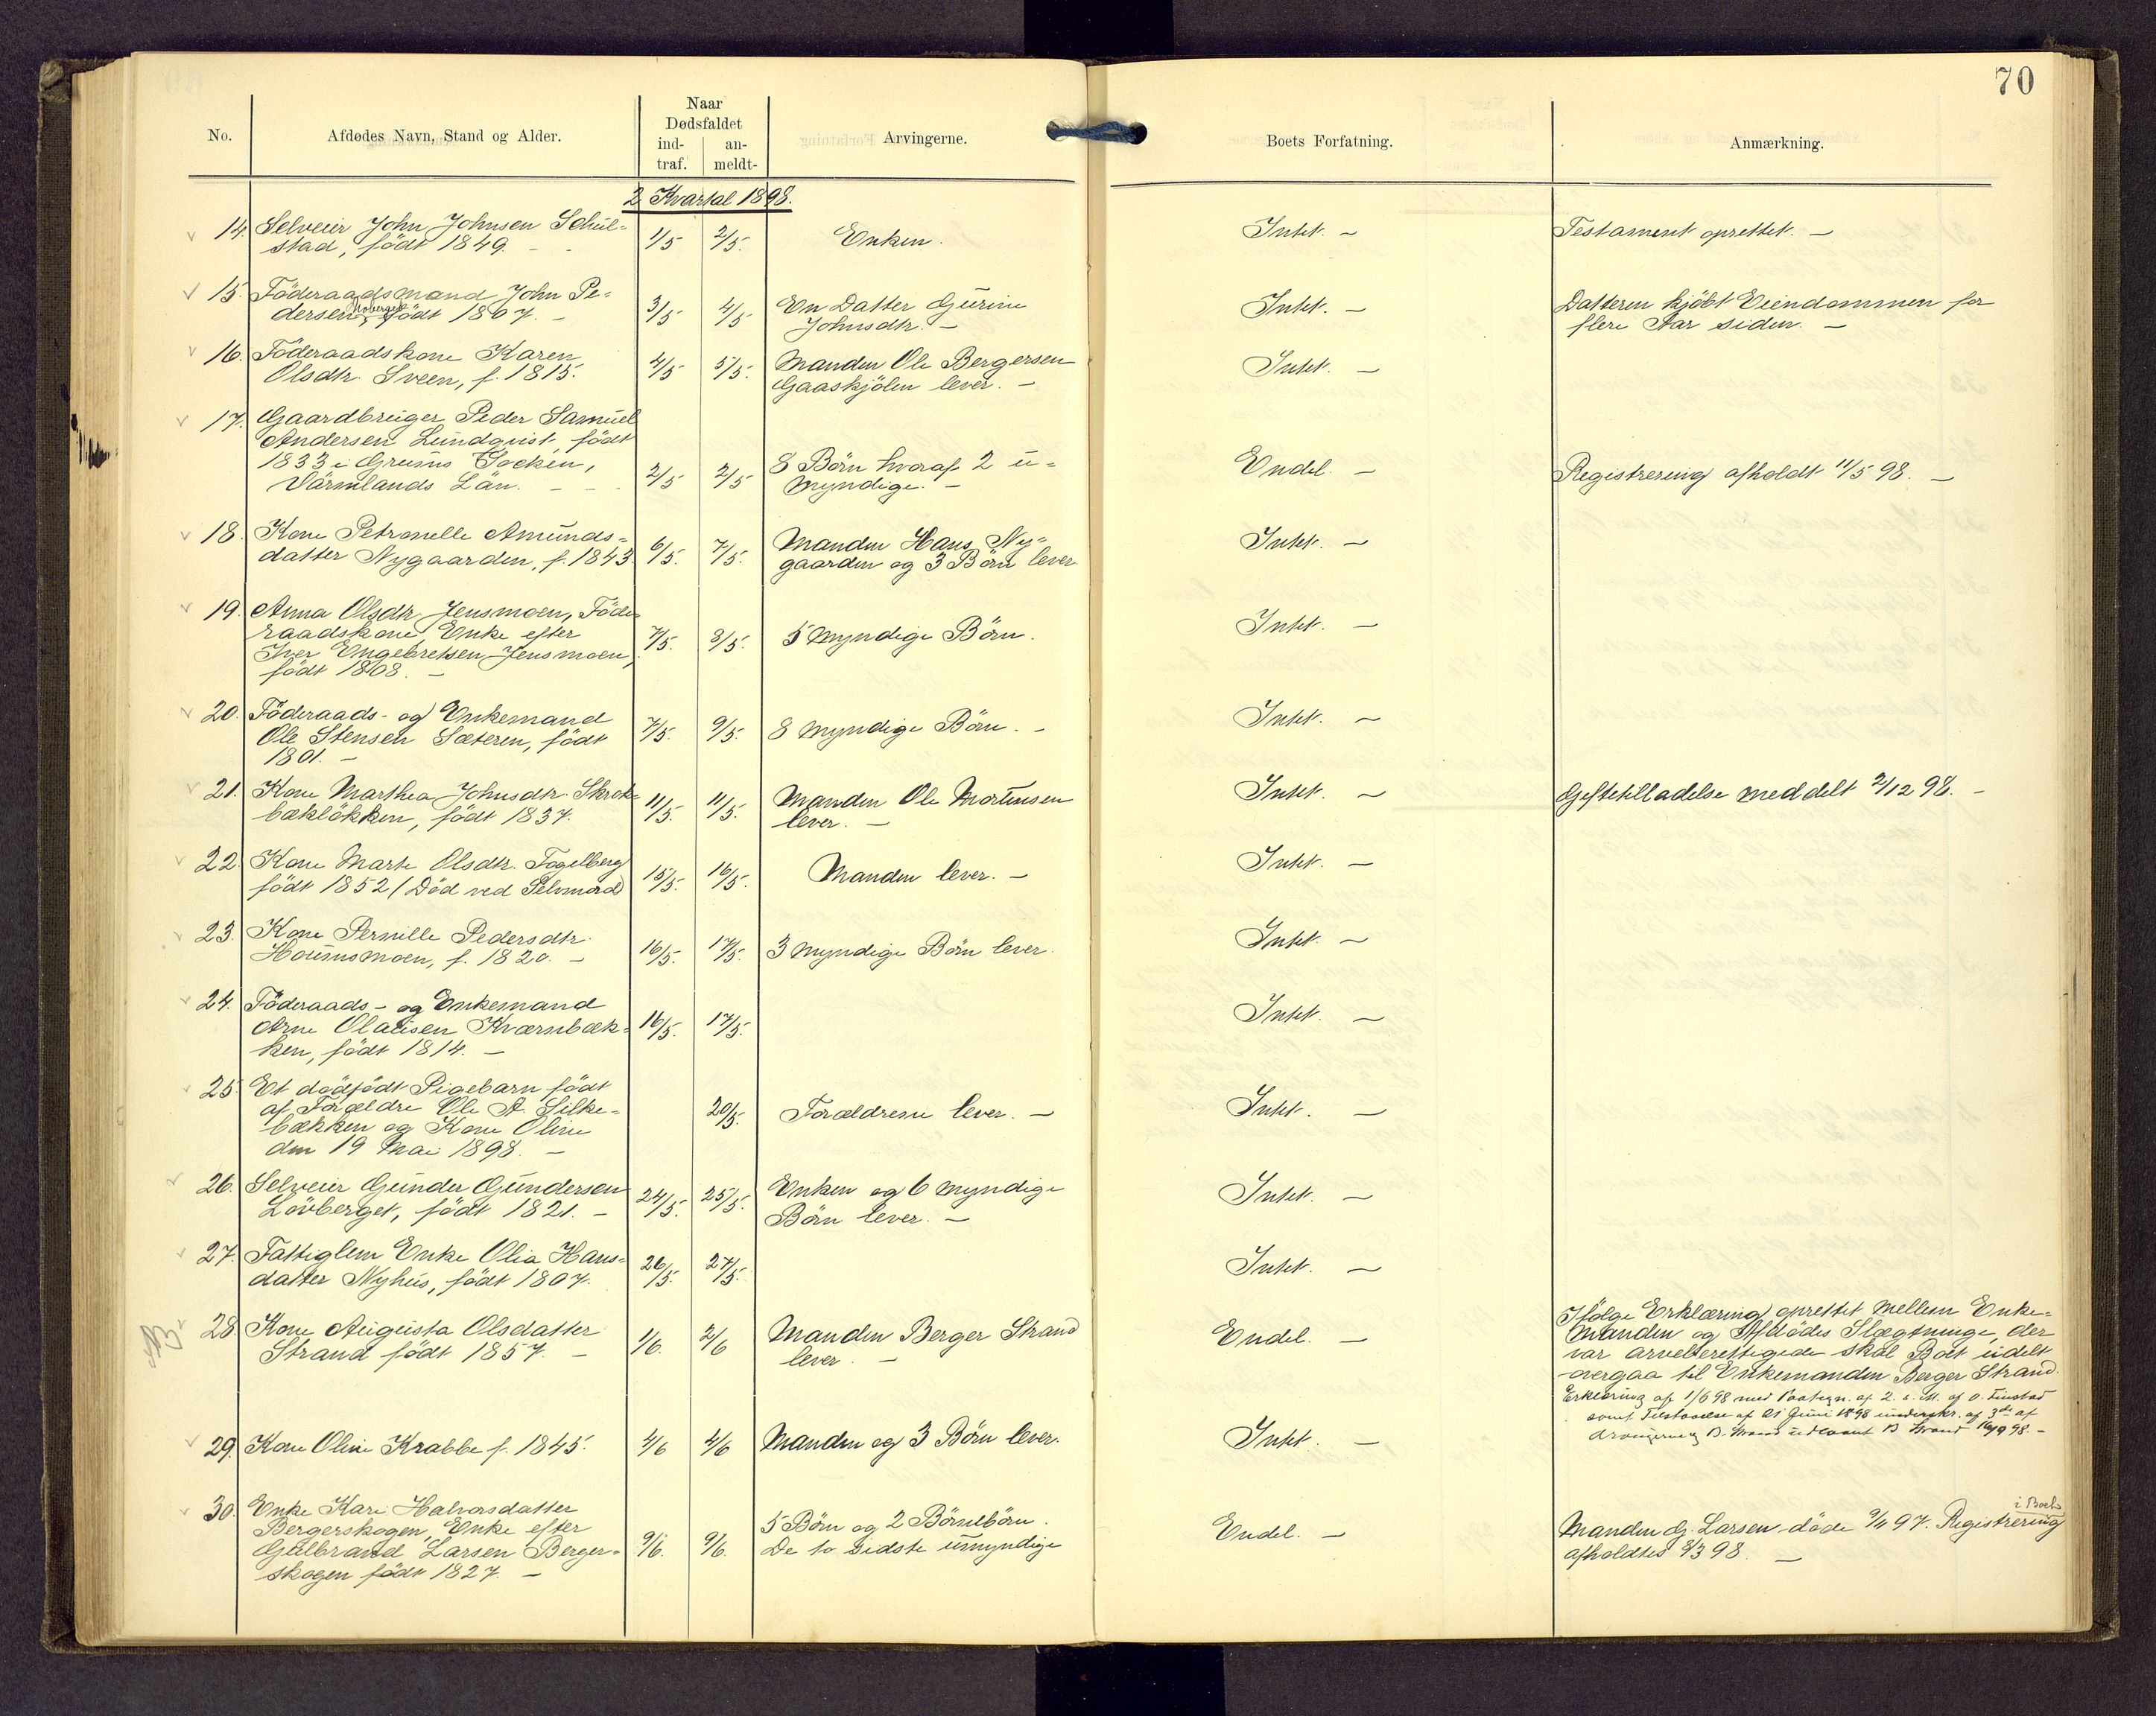 70
No.
Afdødes Navn, Stand og Alder.
Naar
Dødsfaldet
ind-
traf.
an-
meldt-
Arvingerne.
Boets Forfatning.
Anmærkning.
2 Kvartal 1898.
14. Selveier John Johnsen Schul- 1/5 2/5. Enken. Intet. – Testament oprettet. –
stad, født 1849. –
15. Föderaadsmand John Pe- 3/5 4/5 En Datter Gurine Intet. – Datteren kjöbt Eiendommen for
dersen Moberget, født 1807. – Johnsdtr. – flere Aar siden. –
16. Föderaadskone Karen 4/5 5/5. Manden Ole Bergersen Intet. –
Olsdtr. Sveen, f. 1815. Gaaskjölen lever. –
17. Gaardbruger Peder Samuel
Andersen Lundqvist, født
1833 i Grums Socken, 2/5 2/5 8 Börn hvoraf 2 u- Endel. – Registrering afholdt 11/5 98. –
Värmlands Län. – – myndige. –
18. Kone Petronelle Amunds- 6/5. 7/5. Manden Hans Ny- Intet. –
datter Nygaarden, f. 1843. gaarden og 3 Börn lever
19. Anna Olsdtr. Jensmoen, Föde-
raadskone, Enke efter 7/5. 8/5. 5 myndige Börn. Intet. –
Iver Engebretsen Jensmoen,
født 1808. –
20. Föderaads- og Enkemand 7/5. 9/5. 8 myndige Börn. – Intet. –
Ole Stensen Sæteren, født
1801. –
21. Kone Marthea Johnsdtr. 11/5. 11/5. Manden Ole Mortensen Intet. – Giftetilladelse meddelt 2/12 98. –
bæklökken, født 1837. lever. –
22. Kone Marte Olsdtr. Fogelberg 15/5. 16/5. Manden lever. – Intet. –
født 1852 (Død ved Selvmord)
23. Kone Pernille Pedersdtr. 16/5. 17/5. 3 myndige Börn lever. Intet. –
f. 1820. –
24. Föderaads- og Enkemand
Arne Olausen Kværnbæk- 16/5. 17/5. Intet. –
ken, født 1814. –
25. Et dödfödt Pigebarn født
af Forældre Ole A. Silke- 20/5. Forældrene lever. – Intet. –
bækken og Kone Oline
den 19 Mai 1898. –
26. Selveier Gunder Gundersen 24/5. 25/5. Enken og 6 myndige Intet. –
Lövberget, født 1821. – Börn lever. –
27. Fattiglem Enke Olia Hans- 26/5. 27/5. Intet. –
datter Nyhus, født 1807.
28. Kone Augusta Olsdatter 1/6. 2/6 Manden Berger Strand Endel. – Ifølge Erklæring oprettet mellem Enke-
Strand født 1857. – lever. – manden og Afdødes Slægtninge, der
var arveberettigede skal Boet udelt
overgaa til Enkemanden Berger Strand.
Erklæring af 1/6 98 med Paategn. af 2. s. M. af O. Finstad
samt Tilstaaelse af 21 Juni 1898 underskr. af 3de af
16/9 98. –
29. Kone Oline Krabbe f. 1845. 4/6 4/6 Manden og 3 Börn lever. Intet. –
30. Enke Kari Halvorsdatter
Bergerskogen, Enke efter 5 Börn og 2 Börnebörn. i Boet
Gulbrand Larsen Berger- 9/6. 9/6. De to sidste umyndige Endel. – Manden G. Larsen døde 9/11 97. Registrering
skogen født 1827. – afholdtes 8/3 98. –